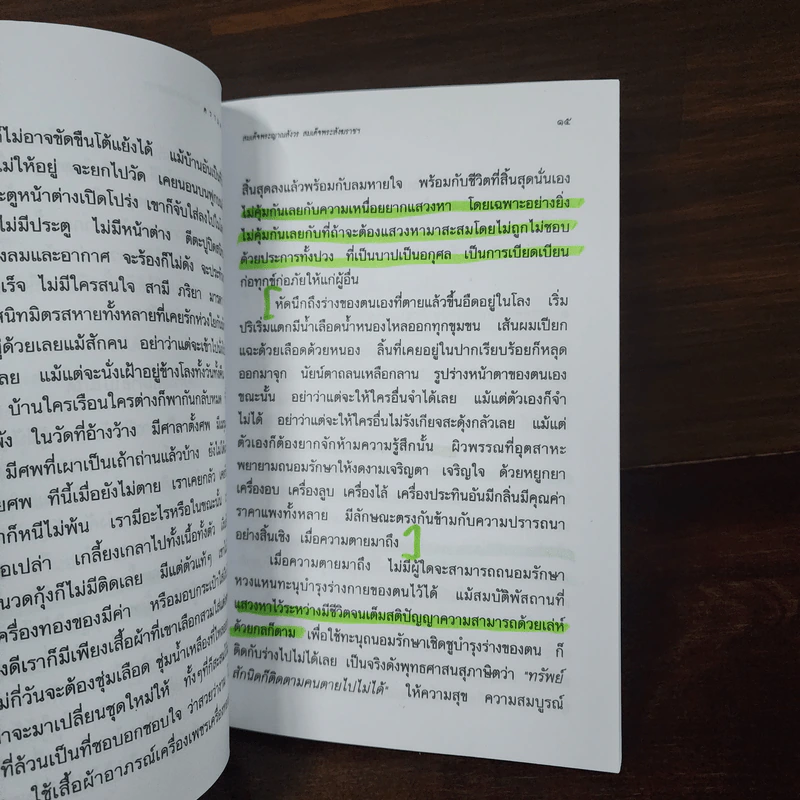 ก็ไม่อาจขัดขืนโต้แย้งได้ แม้บ้านอันเป็นที่
ไม่ให้อยู่ จะยกไปวัด เคยนอนบนฟูก
ประตูหน้าต่างเปิดโปร่ง เขาก็จับใส่ลงไป
ไม่มีประตู ไม่มีหน้าต่าง ตีตะปูปิด
ลมและอากาศ จะร้องก็ไม่ดัง จะ
เร็จ ไม่มีใครสนใจ สามี ภริยา มารดา
สนิทมิตรสหายทั้งหลายที่เคยรักห่วงใย
ด้วยเลยแม้สักคน อย่าว่าแต่จะเข้าไป
ลย แม้แต่จะนั่งเฝ้าอยู่ข้างโลงทั้งวันทั้ง
บ้านใครเรือนใครต่างก็พากันกลับหมด
พัง ในวัดที่อ้างว้าง มีศาลาตั้งศพ
มีศพที่เผาเป็นเถ้าถ่านแล้วบ้าง ยังไม่
ยศพ ทีนี้เมื่อยังไม่ตาย เราเคยกลัว
าก็หนีไม่พ้น เรามีอะไรหรือในขณะนั้น
อเปล่า เกลี้ยงเกลาไปทั้งเนื้อทั้งตัว
นวดกุ้งก็ไม่มีติดเลย มีแต่ตัวแท้ๆ
ครื่องทองของมีค่า หรือมอบกระเป๋า
งดีเราก็มีเพียงเสื้อผ้าที่เขาเลือกสวมใส่
ม่กี่วันจะต้องชุ่มเลือด ชุ่มน้ำเหลือง
าจะมาเปลี่ยนชุดใหม่ให้ ทั้งๆที่
ที่ล้วนเป็นที่ชอบอกชอบใจ ว่าสวย
ใช้เสื้อผ้าอาภรณ์เครื่องเพชร
สมเด็จพระญาณสังวร สมเด็จพระสังฆราชฯ
๑๕
สิ้นสุดลงแล้วพร้อมกับลมหายใจ พร้อมกับชีวิตที่สิ้นสุดนั่นเอง
ไม่คุ้มกันเลยกับความเหนื่อยยากแสวงหา โดยเฉพาะอย่างยิ่ง
ไม่คุ้มกันเลยกับที่ถ้าจะต้องแสวงหามาสะสมโดยไม่ถูกไม่ชอบ
ด้วยประการทั้งปวง ที่เป็นบาปเป็นอกุศล เป็นการเบียดเบียน
ก่อทุกข์ก่อภัยให้แก่ผู้อื่น
หัดนึกถึงร่างของตนเองที่ตายแล้วขึ้นอืดอยู่ในโลง เริ่ม
ปริเริ่มแตกมีน้ำเลือดน้ำหนองไหลออกทุกขุมขน เส้นผมเปียก
แฉะด้วยเลือดด้วยหนอง ลิ้นที่เคยอยู่ในปากเรียบร้อยก็หลุด
ออกมาจุก นัยน์ตาถลนเหลือกลาน รูปร่างหน้าตาของตนเอง
ขณะนั้น อย่าว่าแต่จะให้ใครอื่นจำได้เลย แม้แต่ตัวเองก็จำ
ไม่ได้ อย่าว่าแต่จะให้ใครอื่นไม่รังเกียจสะดุ้งกลัวเลย แม้แต่
ตัวเองก็ต้องยากจักห้ามความรู้สึกนั้น ผิวพรรณที่อุตสาหะ
พยายามถนอมรักษาให้งดงามเจริญตา เจริญใจ ด้วยหยูกยา
เครื่องอบ เครื่องลูบ เครื่องไล้ เครื่องประทินอันมีกลิ่นมีคุณค่า
ราคาแพงทั้งหลาย มีลักษณะตรงกันข้ามกับความปรารถนา
อย่างสิ้นเชิง เมื่อความตายมาถึง
เมื่อความตายมาถึง ไม่มีผู้ใดจะสามารถถนอมรักษา
หวงแหนทะนุบำรุงร่างกายของตนไว้ได้ แม้สมบัติพัสถานที่
แสวงหาไว้ระหว่างมีชีวิตจนเต็มสติปัญญาความสามารถด้วยเล่ห์
ด้วยกลก็ตาม เพื่อใช้ทะนุถนอมรักษาเชิดชูบำรุงร่างของตน ก็
ติดกับร่างไปไม่ได้เลย เป็นจริงดังพุทธศาสนสุภาษิตว่า "ทรัพย์
สักนิดก็ติดตามคนตายไปไม่ได้" ให้ความสุข ความสมบูรณ์